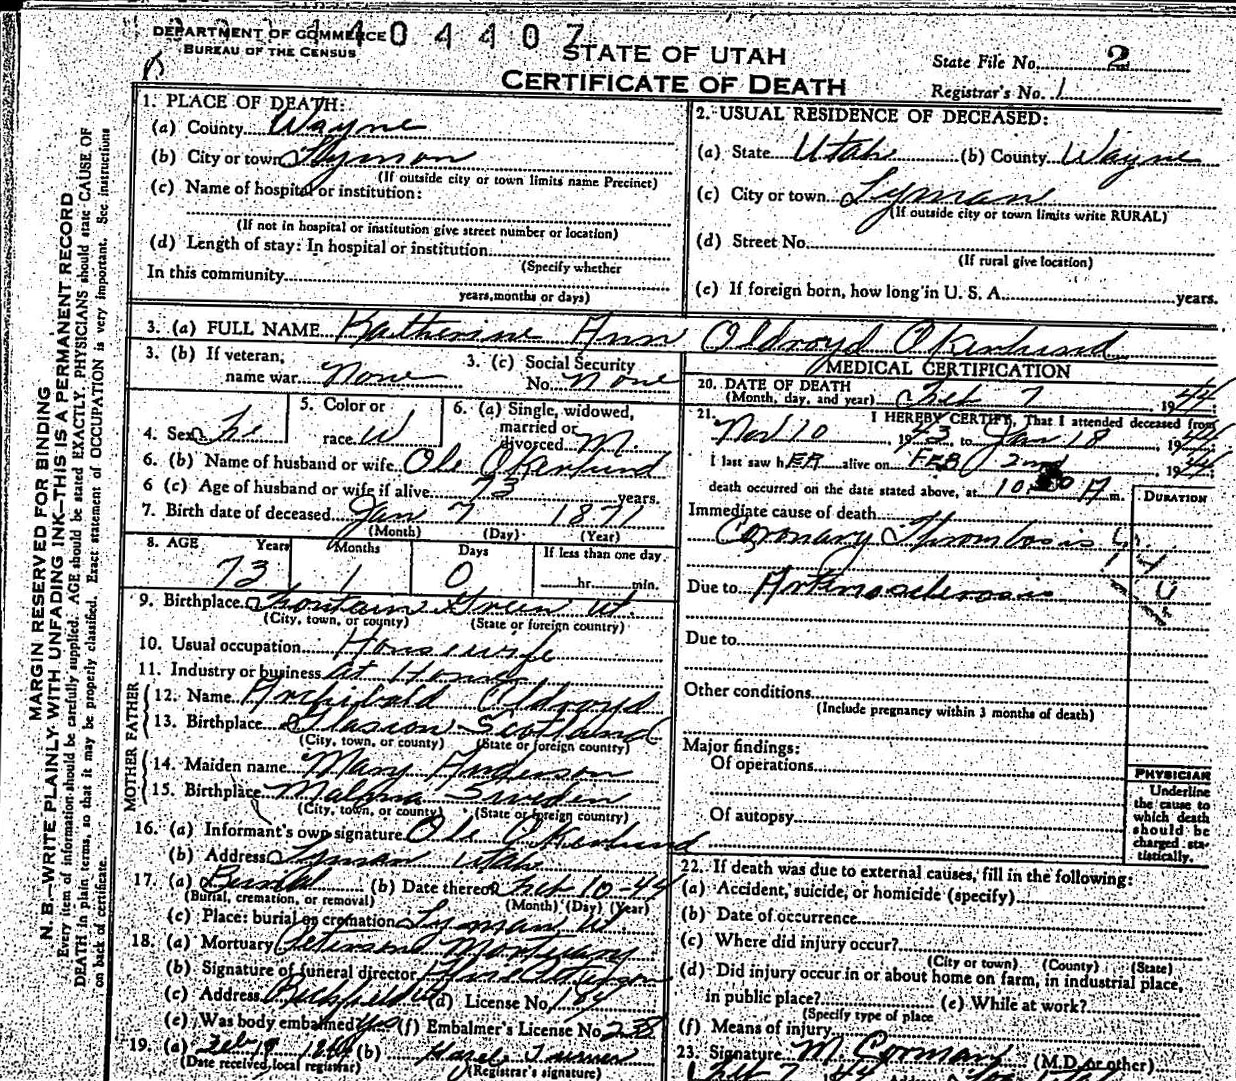 DEPARTMENT OF COMMERCE
BUREAU OF THE CENSUS
404407
STATE OF UTAH
CERTIFICATE OF DEATH
State File No. 2
Registrar's No. 1
MARGIN RESERVED FOR BINDING
N. B.—WRITE PLAINLY WITH UNFADING INK—THIS IS A PERMANENT RECORD
Every item of information should be carefully supplied. AGE should be stated EXACTLY. PHYSICIANS should state CAUSE OF
DEATH in plain terms, so that it may be properly classified. Exact statement of OCCUPATION is very important. See instructions
on back of certificate.
1. PLACE OF DEATH:
(a) County Wayne
(b) City or town Lyman
(If outside city or town limits name Precinct)
(c) Name of hospital or institution:
(If not in hospital or institution give street number or location)
(d) Length of stay: In hospital or institution
(Specify whether
In this community
years, months or days)
2. USUAL RESIDENCE OF DECEASED:
(a) State Utah (b) County Wayne
(c) City or town Lyman
(If outside city or town limits write RURAL)
(d) Street No.
(If rural give location)
(e) If foreign born, how long in U. S. A. years.
3. (a) FULL NAME Katherine Ann Oldroyd Okerlund
3. (b) If veteran, name war None
3. (c) Social Security No. None
4. Sex Fe
5. Color or race W
6. (a) Single, widowed, married or divorced M.
6. (b) Name of husband or wife Ole Okerlund
6 (c) Age of husband or wife if alive 73 years.
7. Birth date of deceased Jan 7 1871
(Month) (Day) (Year)
8. AGE Years Months Days If less than one day
73 1 0 hr. min.
9. Birthplace Fountain Green Ut.
(City, town, or county) (State or foreign country)
10. Usual occupation Housewife
11. Industry or business at Home
FATHER
12. Name Archibald Oldroyd
13. Birthplace Scotland
(City, town, or county) (State or foreign country)
MOTHER
14. Maiden name Mary Anderson
15. Birthplace Malmo Sweden
(City, town, or county) (State or foreign country)
16. (a) Informant's own signature Ole Okerlund
(b) Address Lyman Utah
17. (a) Burial (b) Date thereof Feb 10-44
(Burial, cremation, or removal) (Month) (Day) (Year)
(c) Place: burial or cremation Lyman, U
18. (a) Mortuary Petersons Mortuary
(b) Signature of funeral director
(c) Address Richfield (d) License No. 184
(e) Was body embalmed? Yes (f) Embalmer's License No. 238
19. (a) Feb 19 1944 (b) Hazel
(Date received local registrar) (Registrar's signature)
MEDICAL CERTIFICATION
20. DATE OF DEATH
(Month, day, and year) Feb 7 1944
21. I HEREBY CERTIFY, That I attended deceased from
Nov 10, 1943, to Jan 18, 1944
I last saw hER alive on FEB 2nd, 1944
death occurred on the date stated above, at 10 A m.
DURATION
Immediate cause of death
Coronary Thrombosis
Due to Arteriosclerosis
Due to
Other conditions
(Include pregnancy within 3 months of death)
Major findings:
Of operations
Of autopsy
PHYSICIAN
Underline
the cause to
which death
should be
charged sta-
tistically.
22. If death was due to external causes, fill in the following:
(a) Accident, suicide, or homicide (specify)
(b) Date of occurrence
(c) Where did injury occur?
(City or town) (County) (State)
(d) Did injury occur in or about home on farm, in industrial place,
in public place? (e) While at work?
(Specify type of place
(f) Means of injury
23. Signature (M.D. or other)
Feb 7 1944